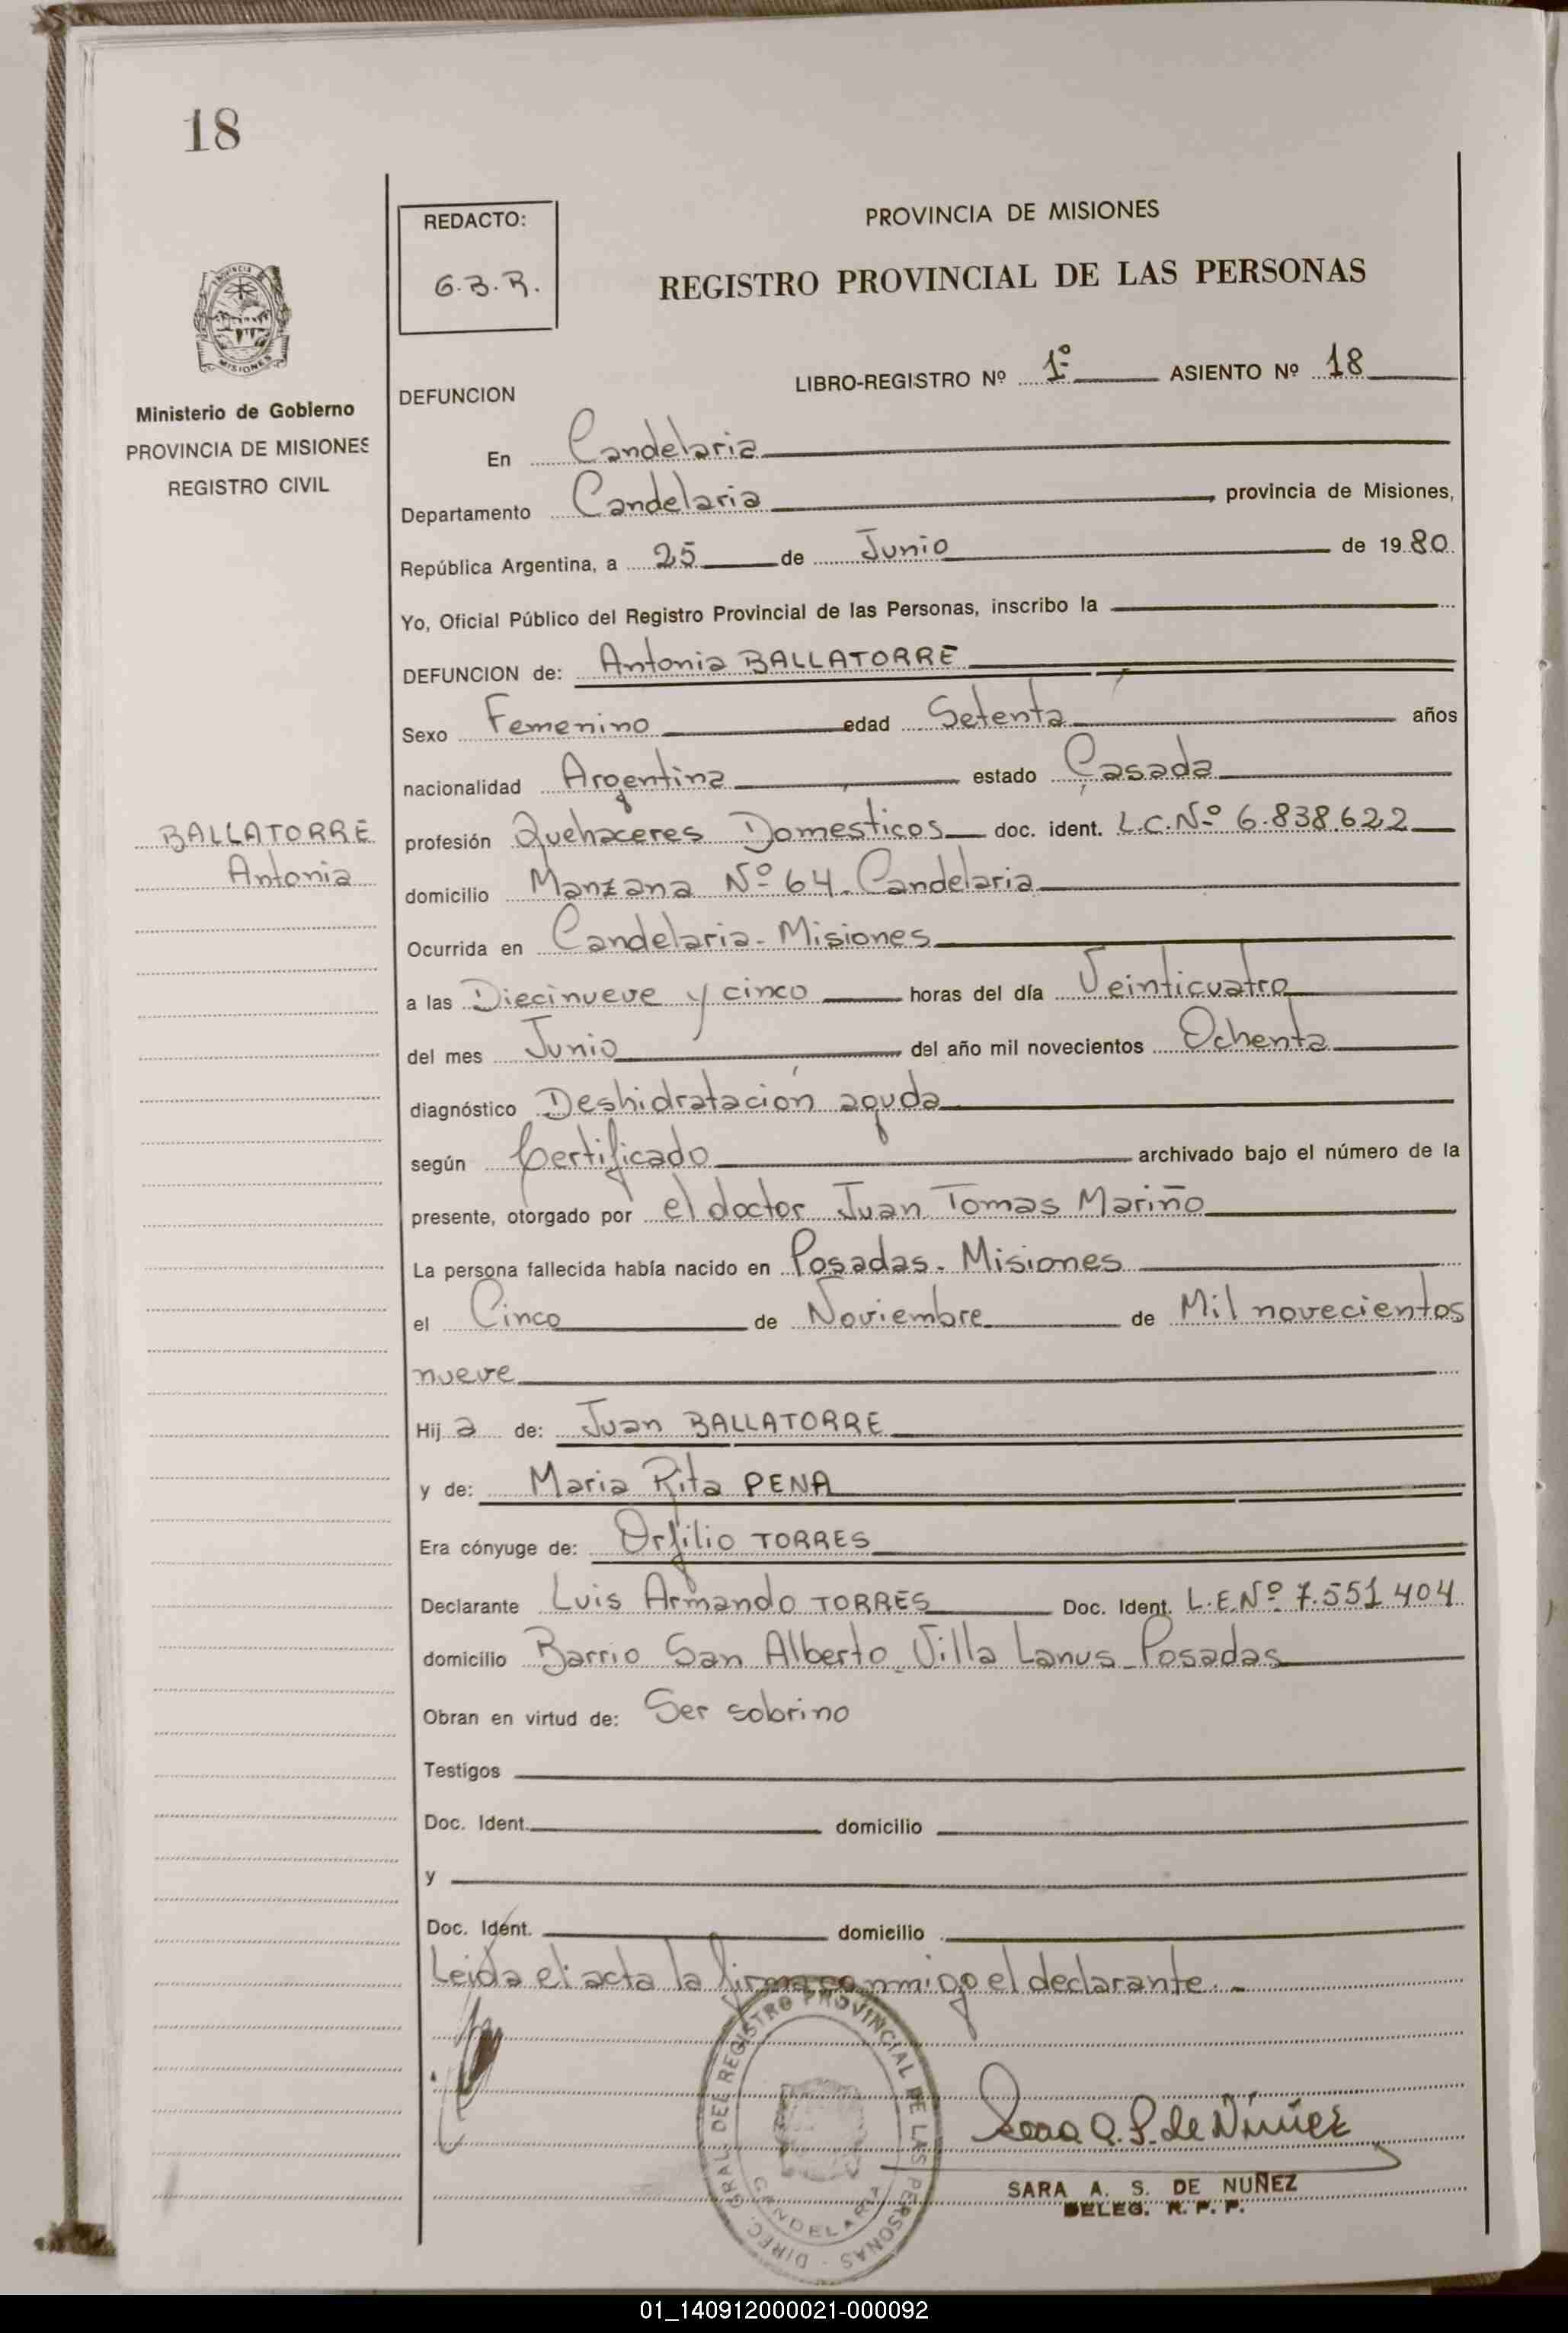 18
REDACTO:
G.B.R.
PROVINCIA DE MISIONES
REGISTRO PROVINCIAL DE LAS PERSONAS
PROVINCIA
MISIONES
Ministerio de Gobierno
PROVINCIA DE MISIONES
REGISTRO CIVIL
BALLATORRE
Antonia
DEFUNCION LIBRO-REGISTRO Nº 1º ASIENTO Nº 18
En Candelaria
Departamento Candelaria, provincia de Misiones,
República Argentina, a 25 de Junio de 1980
Yo, Oficial Público del Registro Provincial de las Personas, inscribo la
DEFUNCION de: Antonia BALLATORRE
Sexo Femenino edad Setenta años
nacionalidad Argentina estado Casada
profesión Quehaceres Domesticos doc. ident. L.C.Nº 6.838.622
domicilio Manzana Nº 64. Candelaria
Ocurrida en Candelaria-Misiones
a las Diecinueve y cinco horas del día Veinticuatro
del mes Junio del año mil novecientos Ochenta
diagnóstico Deshidratación aguda
según Certificado archivado bajo el número de la
presente, otorgado por el doctor Juan Tomas Mariño
La persona fallecida había nacido en Posadas. Misiones
el Cinco de Noviembre de Mil novecientos
nueve
Hija de: Juan BALLATORRE
y de: Maria Rita PENA
Era cónyuge de: Orfilio TORRES
Declarante Luis Armando TORRES Doc. Ident. L.E.Nº 7.551.404
domicilio Barrio San Alberto-Villa Lanus-Posadas
Obran en virtud de: Ser sobrino
Testigos
Doc. Ident. domicilio
y
Doc. Ident. domicilio
Leida el acta la firma conmigo el declarante.-
DIREC. GRAL. DEL REGISTRO PROVINCIAL DE LAS PERSONAS
CANDELARIA
Sara A. S. de Núñez
SARA A. S. DE NUÑEZ
DELEG. R. P. P.
01_140912000021-000092